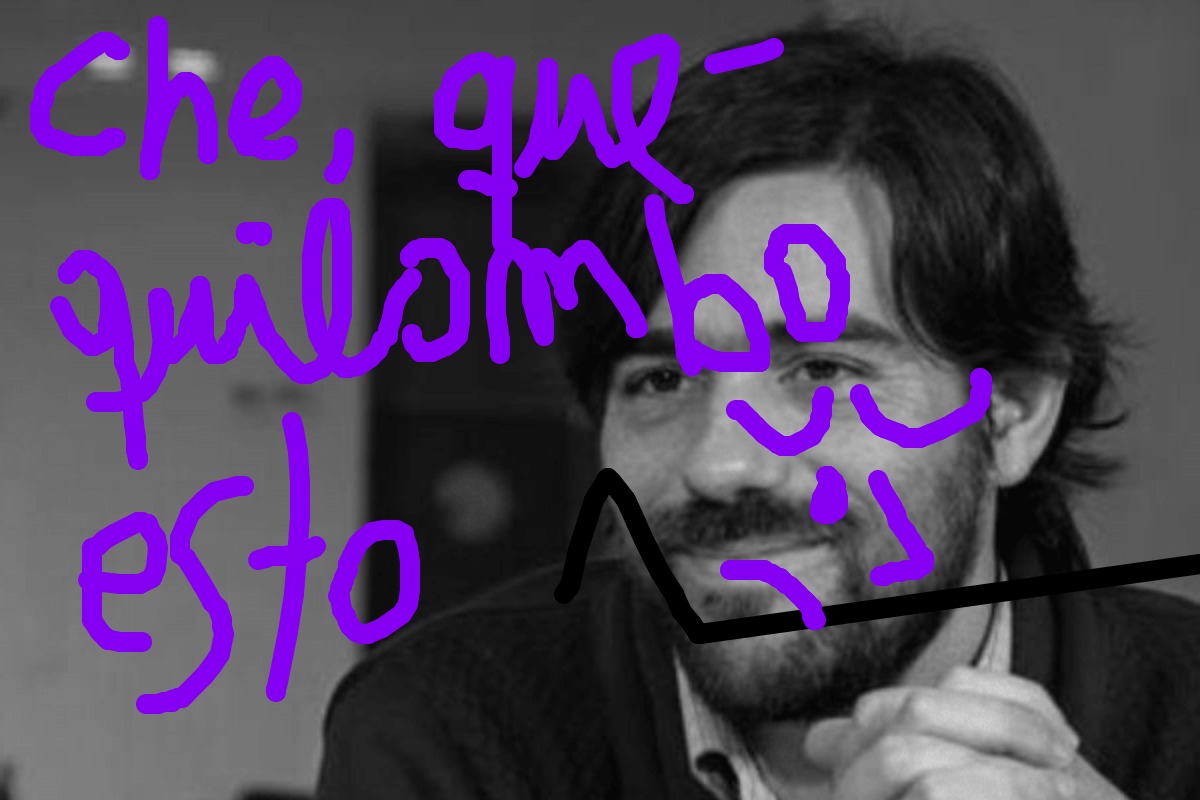 che, que-
quilombo
esto